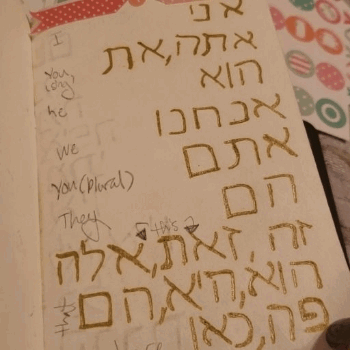 אני
I
אתה,את
you (sing)
הוא
he
אנחנו
we
אתם
you (plural)
הם
They
this
זה, זאת,אלה
הוא,היא,הם
that
פה,כאן